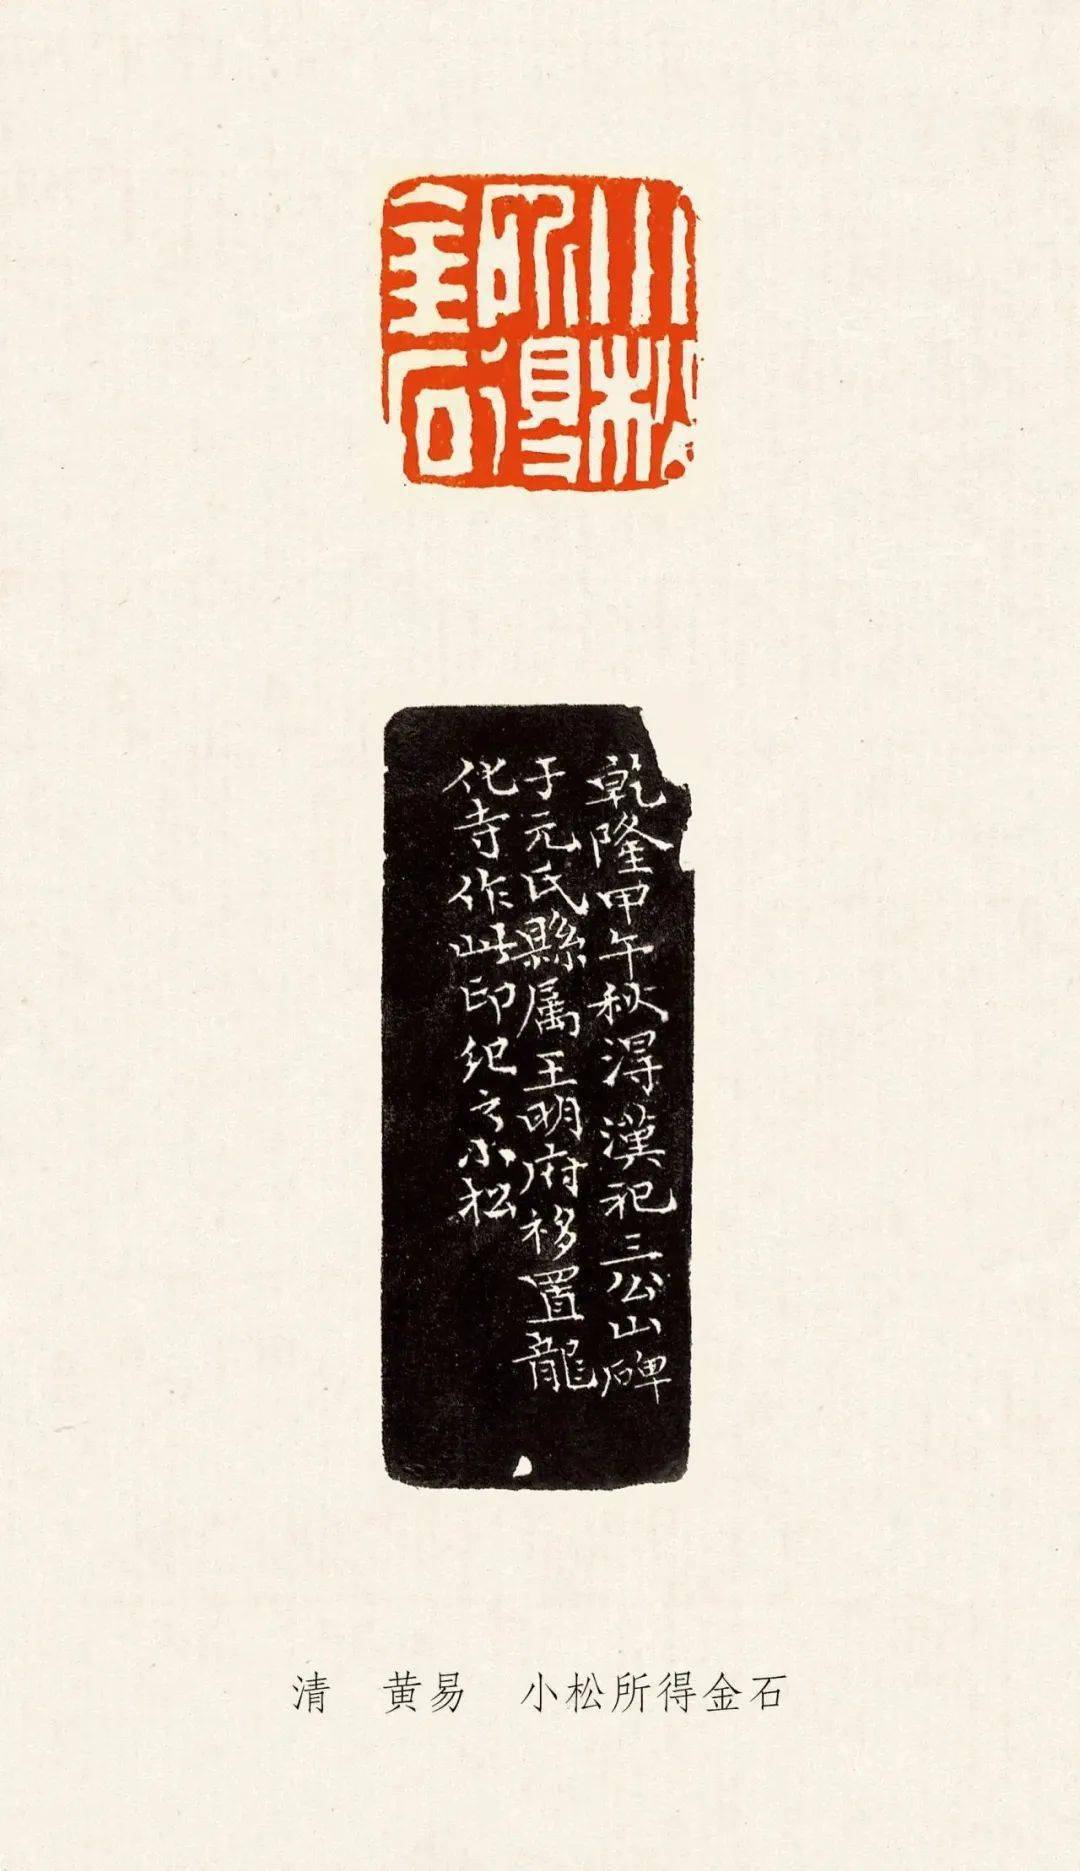 小松
所得
金石
乾隆甲午秋得漢祀三公山碑
于元氏縣属王明府移置龍
化寺作此印紀之小松
清 黄易 小松所得金石